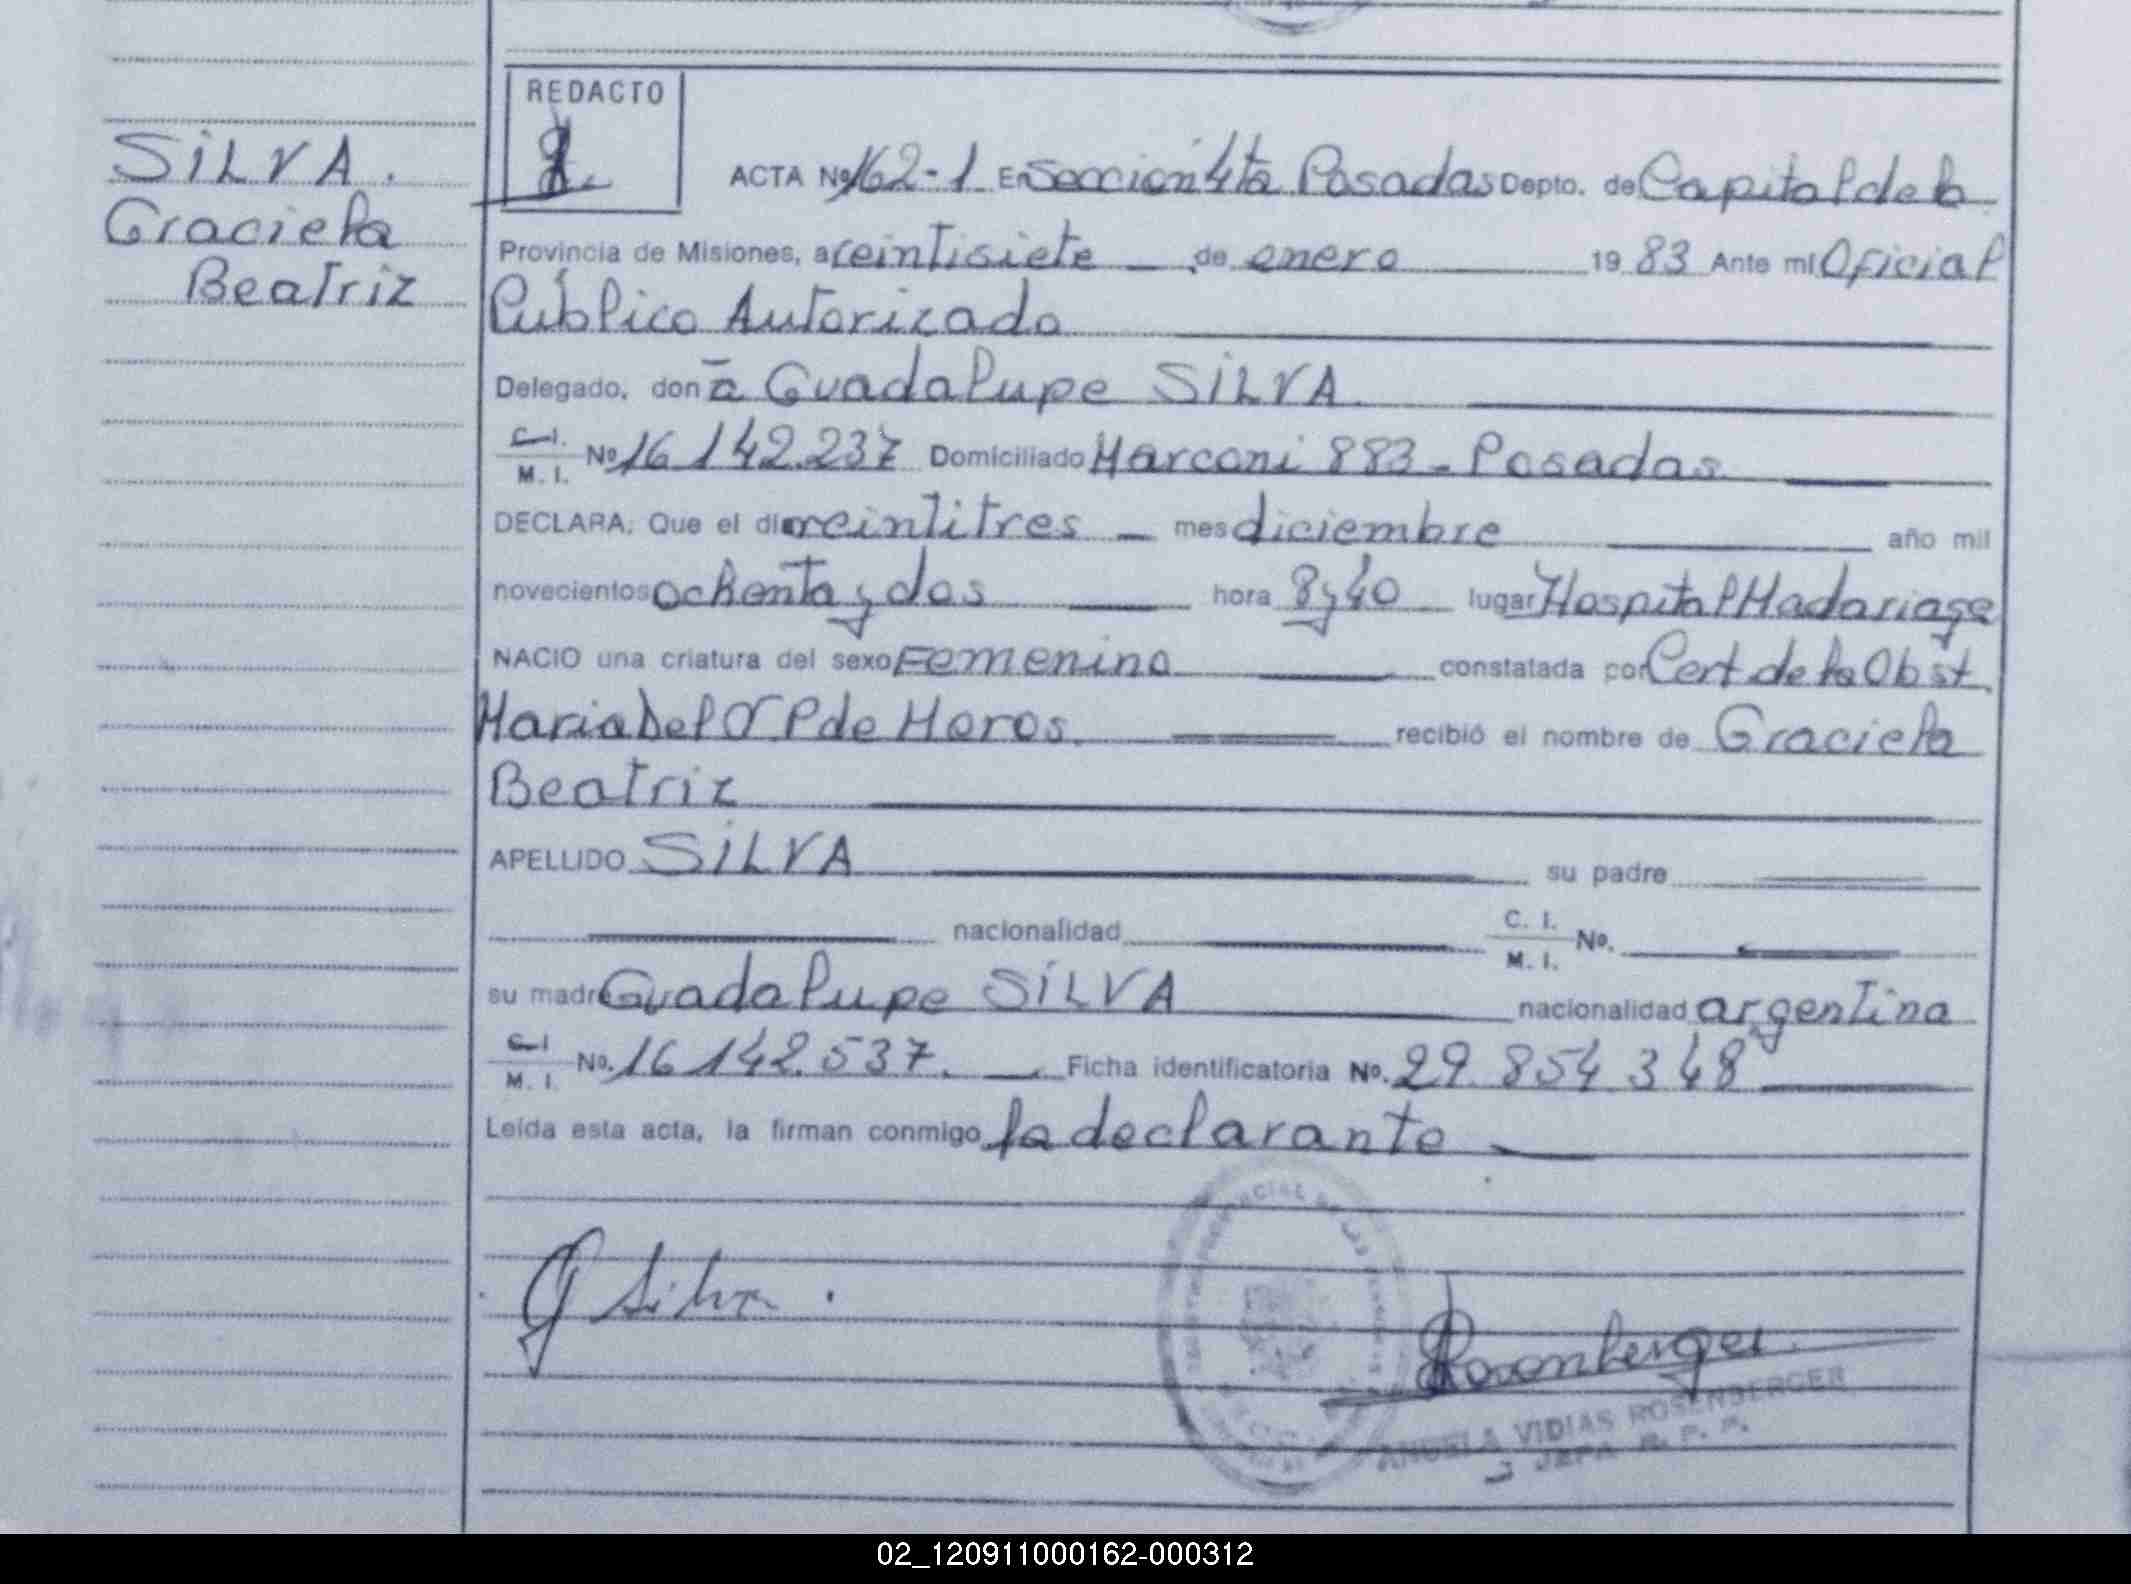 REDACTO
SILVA.
Graciela
Beatriz
ACTA Nº 162-1 En Sección 4ta Posadas Depto. de Capital de la
Provincia de Misiones, a veintisiete de enero 1983 Ante mí Oficial
Público Autorizado
Delegado, don a Guadalupe SILVA
C.I. M.I. Nº 16.142.237 Domiciliado Marconi 883 - Posadas
DECLARA: Que el día veintitres mes diciembre año mil
novecientos ochenta y dos hora 8 y 40 lugar Hospital Madariaga
NACIO una criatura del sexo Femenino constatada por Cert. de la Obst.
Maria Del P de Meros recibió el nombre de Graciela
Beatriz
APELLIDO SILVA su padre
nacionalidad C. I. M. I. Nº.
su madre Guadalupe SILVA nacionalidad argentina
C.I M. I. Nº. 16.142.537. Ficha identificatoria Nº. 29.854.348
Leída esta acta, la firman conmigo la declarante
G Silva.
Rosenberger
VIDIAS ROSENBERGER
JEFA R. P. P.
02_120911000162-000312